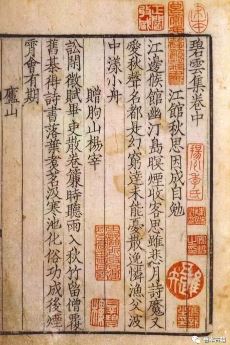 碧雲集卷中
江館秋思因成自勉
江邊候館幽汀島暝煙收客思雖悲月詩魔又
愛秋聲名都是幻窮達未能憂散逸憐漁父波
中漾小舟
贈朐山楊宰
訟閑徵賦畢吏散卷簾時聽雨入秋竹留僧覆
舊棋得詩書落葉煮茗汲寒池化俗功成後煙
霄會有期
廬山